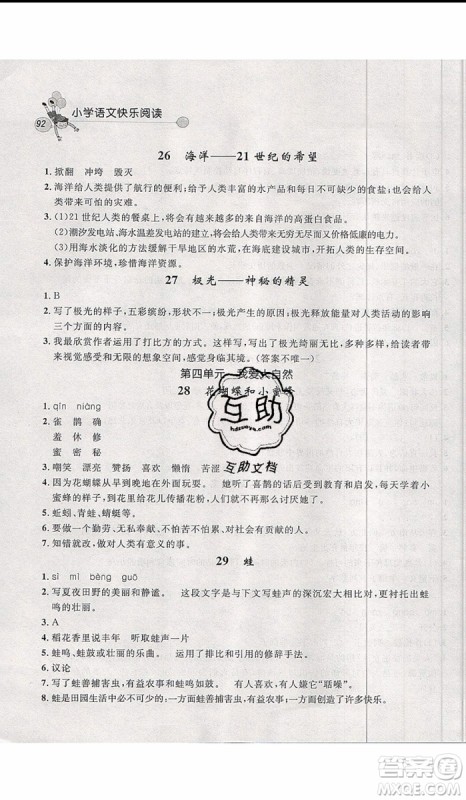 92
小学语文快乐阅读
26 海洋——21世纪的希望
1. 掀翻 冲垮 毁灭
2. 海洋给人类提供了航行的便利;给予人类丰富的水产品和每日不可缺少的食盐;也会给人
类带来可怕的灾难。
3. (1)21世纪人类的餐桌上,将会有越来越多的来自海洋的高蛋白食品。
(2)潮汐发电站、海水温差发电站、波浪发电站将给人类提供大量的电能。
(3)用海水淡化的方法缓解干旱地区的水荒,在海底建设城市,开拓人类的生存空间。
4. 保护海洋环境,珍惜海洋资源。
27 极光——神秘的精灵
1. B
2. 写了极光的样子,五彩缤纷,形状不一;极光产生的原因;极光对人类活动的影响
三个方面的内容。
3. 我最欣赏作者运用了打比方的方法写极光的样子,写出了极光的绚丽美景,给读者
以视觉感受和无限的想象空间,感觉身临其境。(答案不唯一)
第四单元 我爱大自然
28 花蝴蝶和小蜜蜂
1. qín niàng
2. 雀 鹊 确
羞 休 修
蜜 密 秘
3. 嘲笑 漂亮 赞扬 喜欢 懒惰 苦涩
4. 因为花蝴蝶总是从早到晚地在外面玩。 她听了喜鹊的话后受到教育和启发,学着小
蜜蜂的样子,到花里给花儿传播花粉,人们就不会再讨厌她了。
5. 蚯蚓、青蛙、蜻蜓等。
6. 要做一个勤劳、无私奉献、不怕吃苦的人。
7. 知错就改,做对人类有意义的事。
29 蛙
1. sì mì bèng guō
2. 写夏夜田野的美丽和静谧。 这段文字是与下文写蛙声的深沉宏大相对比,更衬托出蛙
鸣的洪亮。
3. A
4. 稻花香里说丰年 听取蛙声一片
5. 蛙鸣、蛙声比作美丽的乐曲。 运用了对比和借用的修辞手法。
6. 议论
7. 写了蛙善捕害虫,有益农事和人们喜欢蛙。 有人喜欢,有人讨厌。
8. 蛙是田园生活中必不可少的;一方面蛙善捕害虫,有益农事;一方面创造了许多快乐。
互助
hdzuoye.com
互助文档
答案圈
MXQE.COM